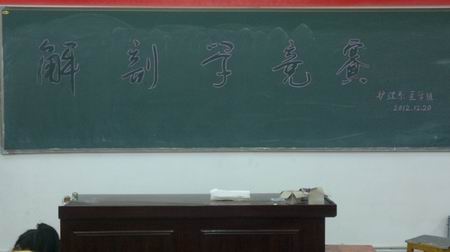 解剖学竞赛
护理系.医学组
2012.12.20